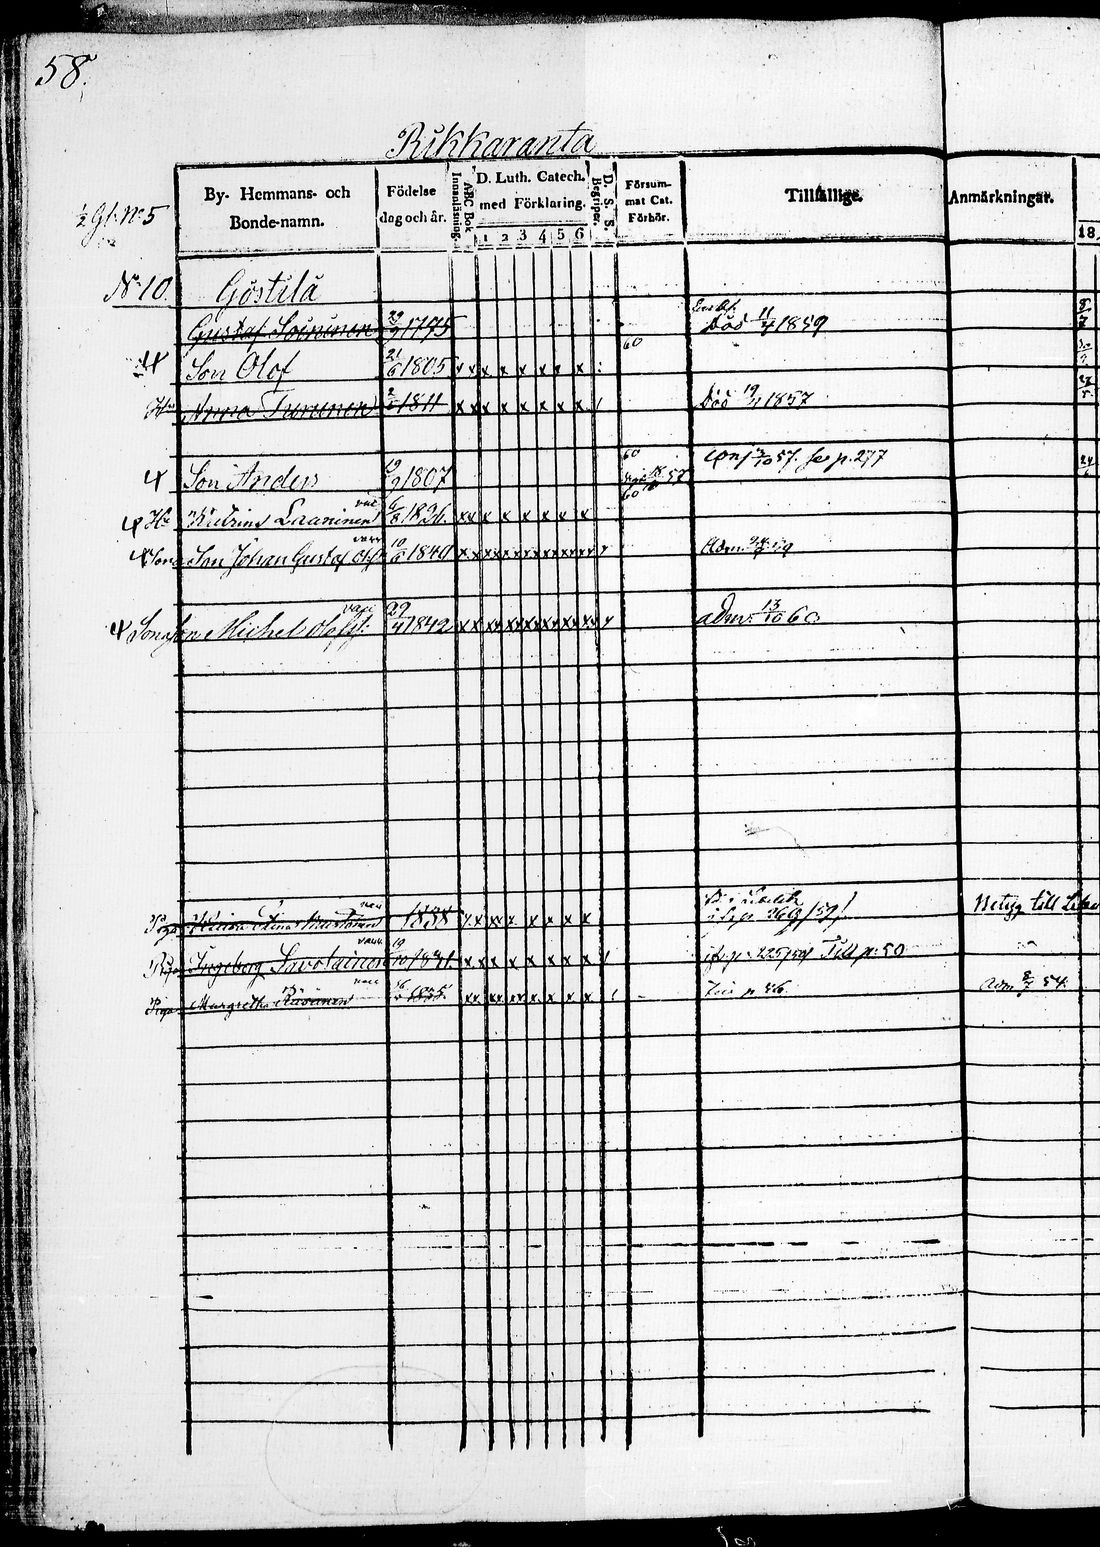 58.
Rikkaranta
By- Hemmans- och Bonde-namn.
Födelse dag och år.
ABC Bok Innanläsning.
D. Luth. Catech. med Förklaring.
1 2 3 4 5 6
D. S. S. Begriper.
Försummat Cat. Förhör.
Tillfällige.
Anmärkningar.
18
½ Gl. No 5
No 10. Göstilä
Gustaf Soininen 29/9 1795 Död 11/4 1859
60
Son Olof 21/6 1805 x x x x x x x
Hu Anna Turunen 2/5 1811 x x x x x x x Död 19/11 1857
Son Anders 19/9 1807 60 57 60 conf 57. se p. 277
Hu Katrina Laaninen vac 6/8 1826. x x x x x x x x
Son Johan Gustaf Olofs 10/6 1840 Adm. 59
Sonason Michel Olofss. vacc 29/4 1842 adm. 13/10 60
Piga 1838 x x x x x x x p. 269/59 Betyg till
Piga Ingeborg Savolainen vacc 19/10 1831. x x x x x x x p. 225/59 Till p. 50
Piga Margretha vacc 1835 x x x x x x x p. 56. Adm 8/7 54.